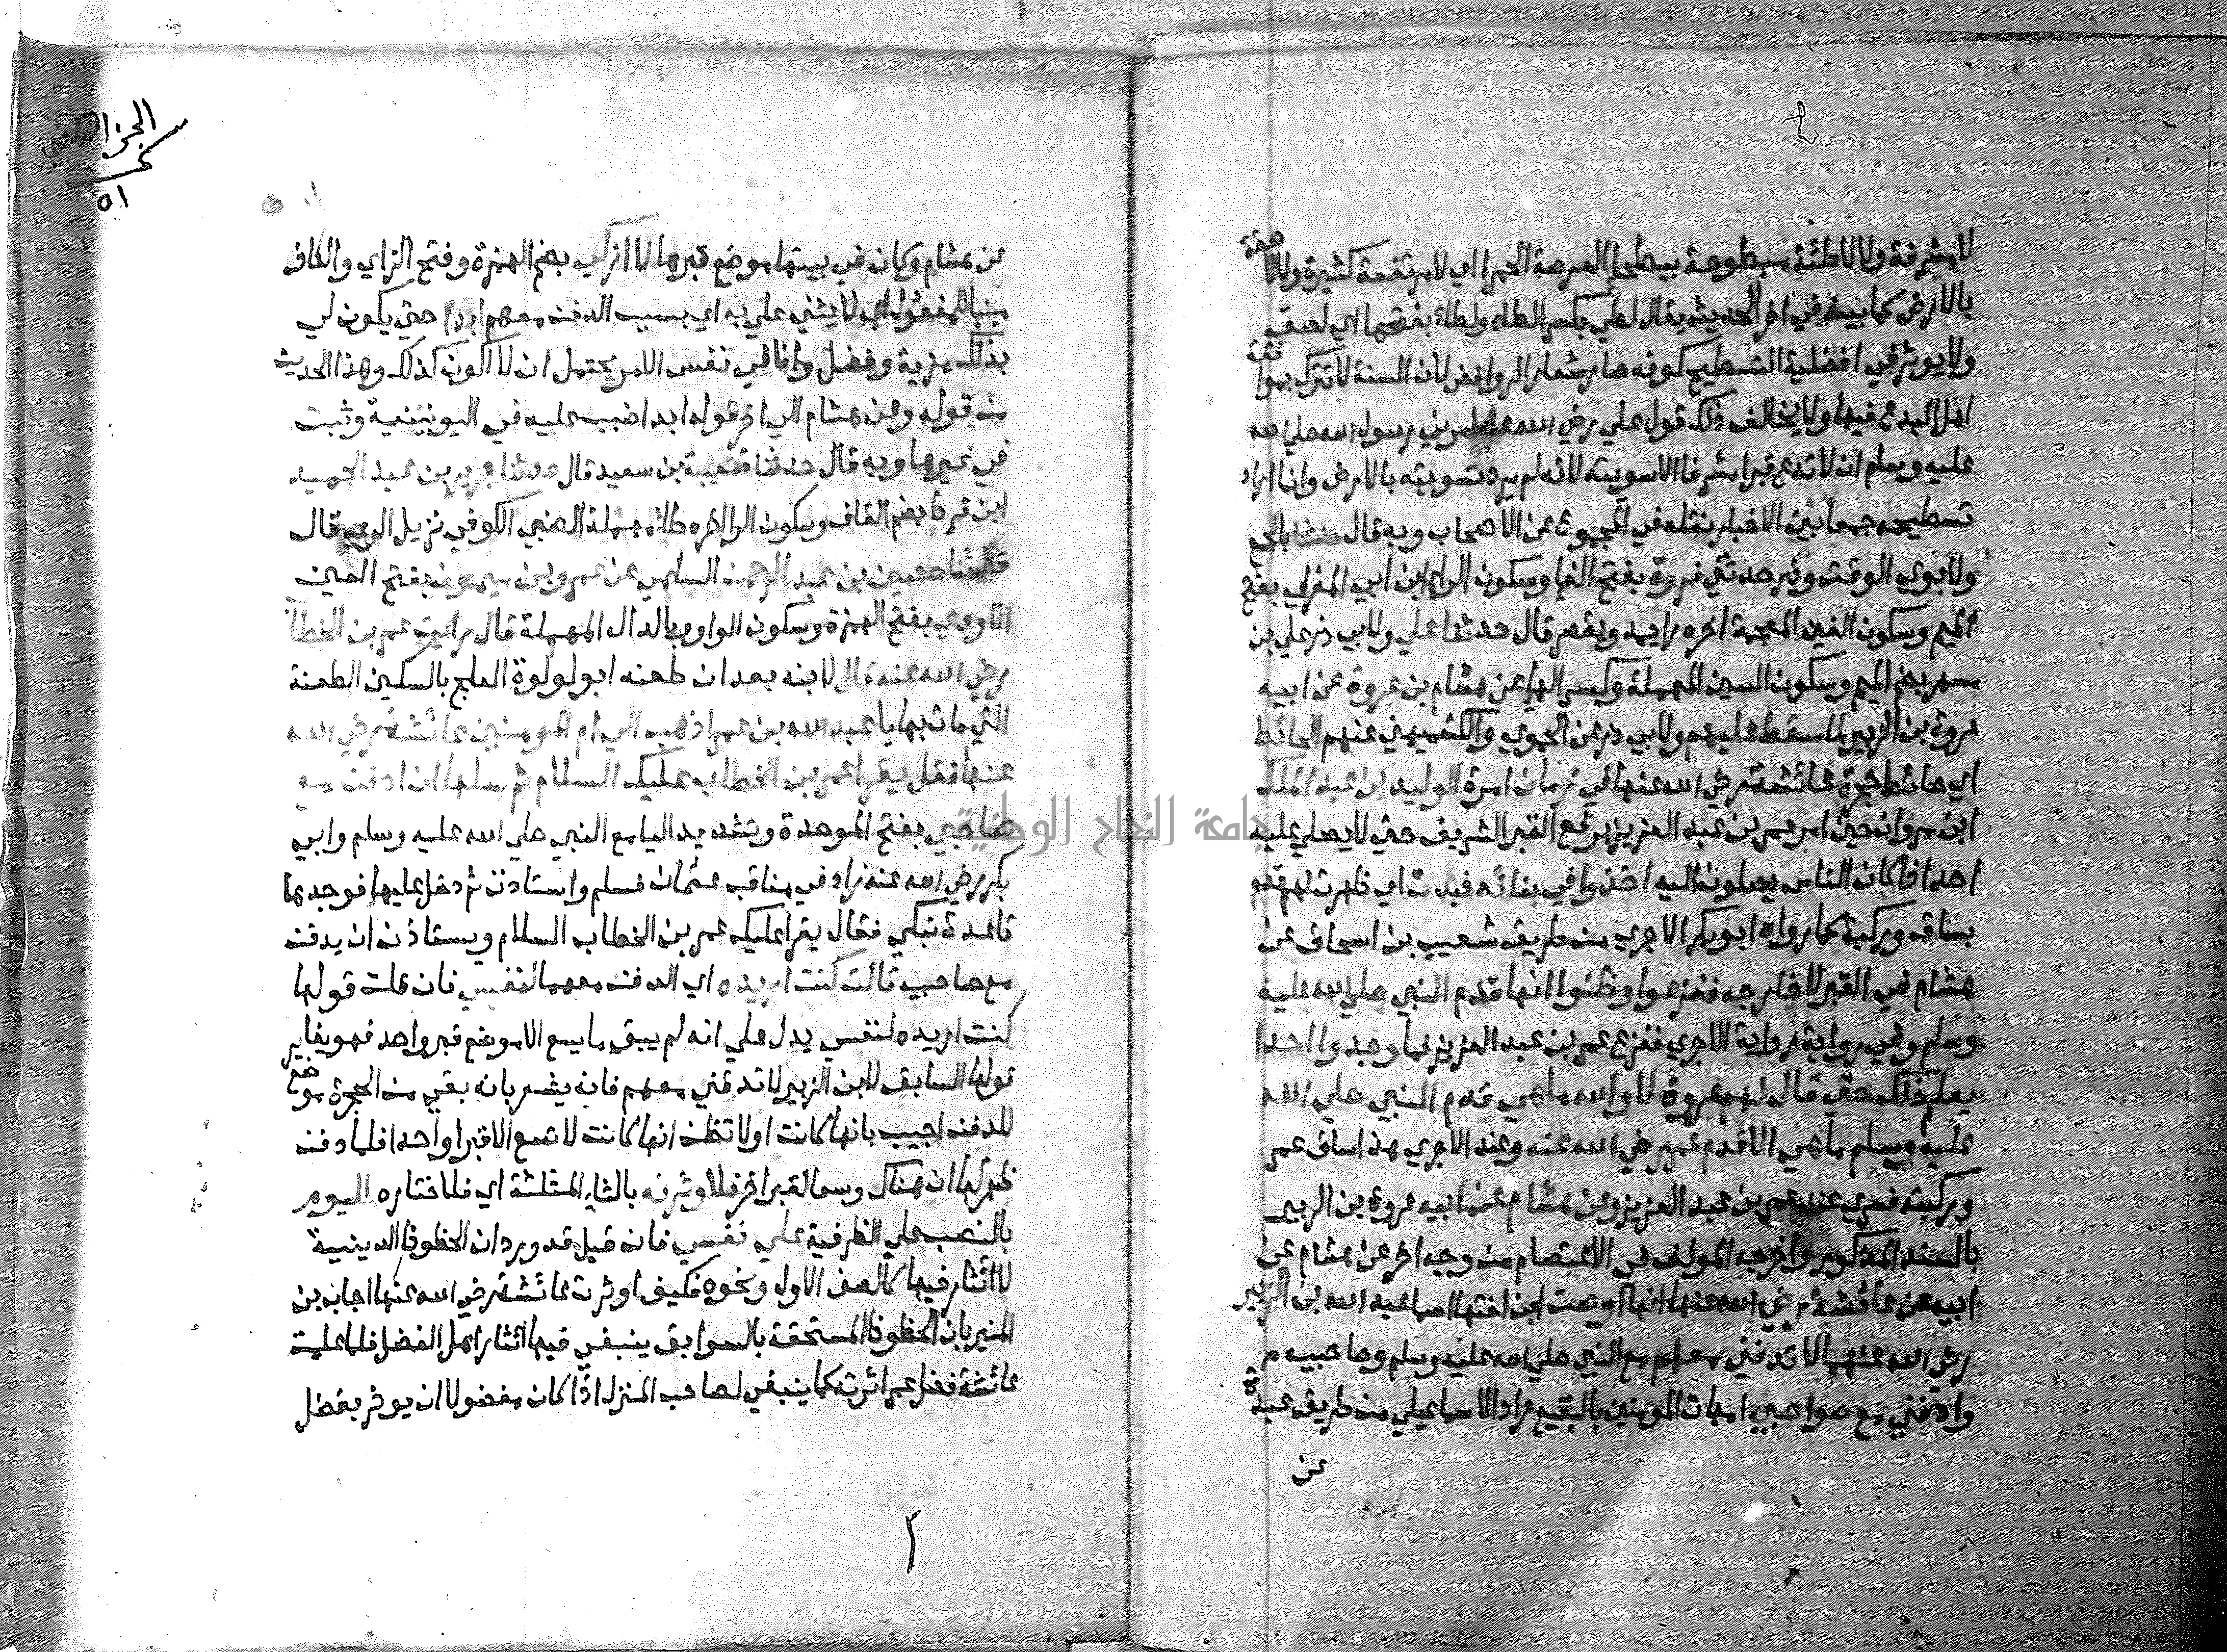 لا مشرفة ولا لاطئة مبطوحة ببطحا العرصة الحمرا اي لا مرتفعة كثيرة ولا لاصقة
بالارض كما بينه في اخر الحديث يقال لطي بكسر الطاء ولطاء بفتحها اي لصق
ولا يوثر في افضلية التسطيح كونه صار شعار الروافض لان السنة لا تترك بموافقة
اهل البدع فيها ولا يخالف ذلك قول علي رضي الله عنه امرني رسول الله صلي الله
عليه وسلم ان لا تدع قبرا مشرفا الا سويته لانه لم يرد تسويته بالارض وانما اراد
تسطيحه جمعا بين الاخبار نقله في المجموع عن الاصحاب وبه قال حدثنا بالجمع
ولابوي الوقت وذر حدثني فروة بفتح الفا وسكون الرا ابن ابي المغرا بفتح
الميم وسكون الغين المعجمة اخره را يمد ويقصر قال حدثنا علي ولابي ذر علي بن
مسهر بضم الميم وسكون السين المهملة وكسر الها عن هشام بن عروة عن ابيه
عروة بن الزبير لما سقط عليهم ولابي ذر عن الحموي والكشميهني عنهم الحائط
اي حائط حجرة عائشة رضي الله عنها في زمان امرة الوليد بن عبد الملك
ابن مروان حين امر عمر بن عبد العزيز برفع القبر الشريف حتي لا يصلي عليه
احد اذا كان الناس يصلون اليه اخذوا في بنائه فبدت اي ظهرت لهم قدم
بساق وركبة كما رواه ابو بكر الاجري من طريق شعيب بن اسحاق عن
هشام في القبر لا خارجه ففزعوا وظنوا انها قدم النبي صلي الله عليه
وسلم وفي رواية رواية الاجري ففزع عمر بن عبد العزيز فما وجدوا احدا
يعلم ذلك حتي قال لهم عروة لا والله ما هي قدم النبي صلي الله
عليه وسلم ما هي الا قدم عمر رضي الله عنه وعند الاجري هذا ساق عمر
وركبته فسري عن عمر بن عبد العزيز وعن هشام عن ابيه عروة بن الزبير
بالسند المذكور واخرجه المولف في الاعتصام من وجه اخر عن هشام عن
ابيه عن عائشة رضي الله عنها انها اوصت ابن اختها اسما عبد الله بن الزبير
رضي الله عنهما لا تدفني معهم مع النبي صلي الله عليه وسلم وصاحبيه
وادفني مع صواحبي امهات المومنين بالبقيع زاد الاسماعيلي من طريق عبدة
عن
الجز الثاني
٥١
عن هشام وكان في بيتها موضع قبرها لا ازكي بضم الهمزة وفتح الزاي والكاف
مبنيا للمفعول اي لا يثني علي به اي بسبب الدفن معهم ابدا حتي يكون لي
بذلك مزية وفضل وانا في نفس الامر يحتمل ان لا اكون كذلك وهذا الحديث
من قوله وعن هشام الي اخر قوله ابدا ضبب عليه في اليونينية وثبت
في غيرها وبه قال حدثنا قتيبة بن سعيد قال حدثنا جرير بن عبد الحميد
ابن قرط بضم القاف وسكون الرا اخره طاء مهملة الضبي الكوفي نزيل الري قال
حدثنا حصين بن عبد الرحمن السلمي عن عمرو بن ميمون بفتح العين
الاودي بفتح الهمزة وسكون الواو وبالدال المهملة قال رايت عمر بن الخطاب
رضي الله عنه قال لابنه بعد ان طعنه ابو لولوة العلج بالسكين الطعنة
التي مات بها يا عبد الله بن عمر اذهب الي ام المومنين عائشة رضي الله
عنها فقل يقرا عمر بن الخطاب عليك السلام ثم سلها ان ادفن مع
صاحبي بفتح الموحدة وتشديد اليا مع النبي صلي الله عليه وسلم وابي
بكر رضي الله عنه زاد في مناقب عثمان فسلم واستاذن ثم دخل عليها فوجدها
قاعدة تبكي فقال يقرا عليك عمر بن الخطاب السلام ويستاذن ان يدفن
مع صاحبيه قالت كنت اريده اي الدفن معهما لنفسي فان قلت قولها
كنت اريده لنفسي يدل علي انه لم يبق ما يسع الا موضع قبر واحد فهو يغاير
قولها السابق لابن الزبير لا تدفني معهم فانه يشعر بانه بقي من الحجرة موضع
للدفن اجيب بانها كانت اولا تظن انها كانت لا تسع الا قبرا واحدا فلما دفن
ظهر لها ان هناك وسعا لقبر اخر فلاوثرنه بالثاء المثلثة اي فلاختاره اليوم
بالنصب علي الظرفية علي نفسي فان قيل قد ورد ان الحظوظ الدينية
لا ائثار فيها كالصف الاول ونحوه فكيف اوثرت عائشة رضي الله عنها اجاب بن
المنير بان الحظوظ المستحقة بالسوابق ينبغي فيها ائثار اهل الفضل فلما علمت
عائشة فضل عمر اثرته كما ينبغي لصاحب المنزل اذا كان مفضولا ان يوثر بفضل
جامعة النجاح الوطنية